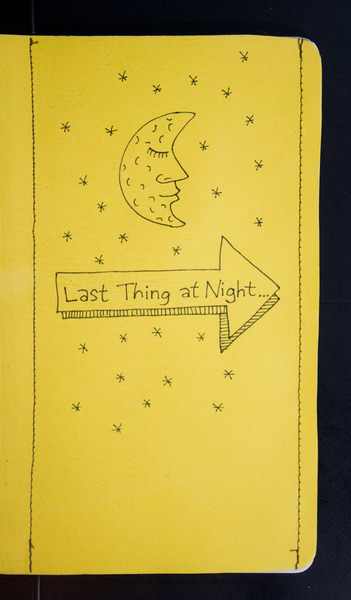 Last Thing at Night...